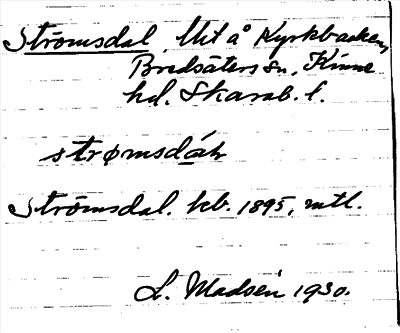 Strömsdal, lht å Kyrkbacken,
Bredsäters sn, Kinne
hd. Skarab. l.
strømsdáh
Strömsdal. kb. 1895, mtl.
L. Madsén 1930.